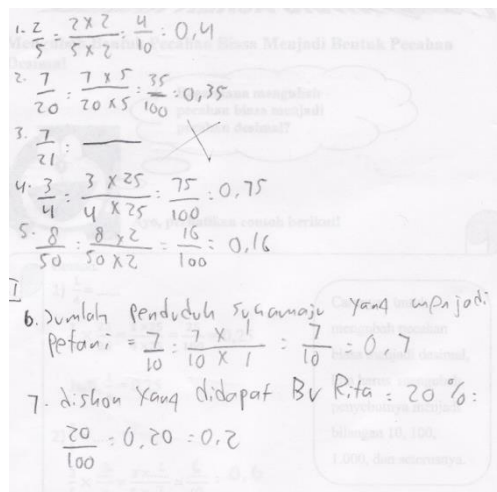 1. 2/5 = 2 x 2 / 5 x 2 = 4/10 = 0,4
2. 7/20 = 7 x 5 / 20 x 5 = 35/100 = 0,35
3. 7/21 = —
4. 3/4 = 3 x 25 / 4 x 25 = 75/100 = 0,75
5. 8/50 = 8 x 2 / 50 x 2 = 16/100 = 0,16
6. Jumlah penduduk sukamaju yang menjadi
petani = 7/10 = 7 x 1 / 10 x 1 = 7/10 = 0,7
7. diskon yang didapat Bu Rita = 20 % =
20/100 = 0,20 = 0,2